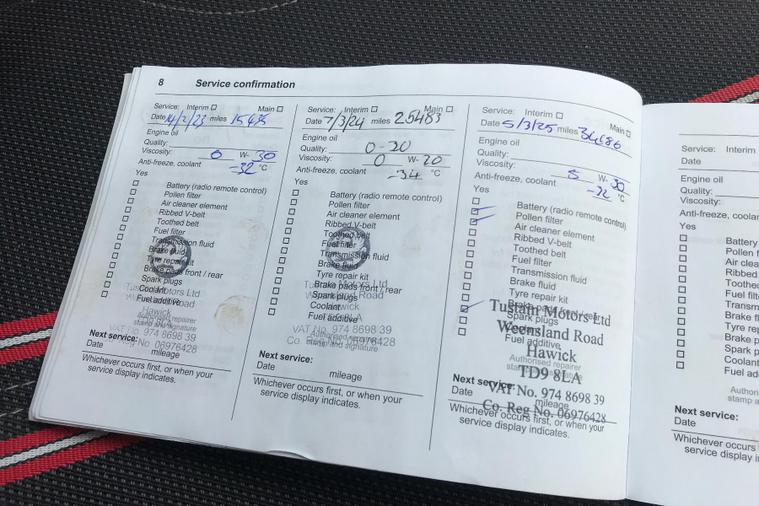 8 Service confirmation
Service: Interim Main
Date 14/2/23 miles
Engine oil
Quality:
Viscosity: 0 W- 30
Anti-freeze, coolant -32 °C
Yes
Battery (radio remote control)
Pollen filter
Air cleaner element
Ribbed V-belt
Toothed belt
Fuel filter
Transmission fluid
Brake fluid
Tyre repair kit
Brake pads front / rear
Spark plugs
Coolant
Fuel additive
Tustain Motors Ltd
Weensland Road
Hawick
Authorised repairer
stamp and signature
VAT No. 974 8698 39
Co. Reg No. 06976428
Next service:
Date mileage
Whichever occurs first, or when your
service display indicates.
Service: Interim Main
Date 7/3/24 miles 25483
Engine oil
Quality: 0-20
Viscosity: 0 W- 20
Anti-freeze, coolant -34 °C
Yes
Battery (radio remote control)
Pollen filter
Air cleaner element
Ribbed V-belt
Toothed belt
Fuel filter
Transmission fluid
Brake fluid
Tyre repair kit
Brake pads front / rear
Spark plugs
Coolant
Fuel additive
Tustain Motors Ltd
Weensland Road
Hawick
TD9 8LA
Authorised repairer
stamp and signature
VAT No. 974 8698 39
Co. Reg No. 06976428
Next service:
Date mileage
Whichever occurs first, or when your
service display indicates.
Service: Interim Main
Date 5/3/25 miles 34686
Engine oil
Quality:
Viscosity: W- 30
Anti-freeze, coolant -32 °C
Yes
Battery (radio remote control)
Pollen filter
Air cleaner element
Ribbed V-belt
Toothed belt
Fuel filter
Transmission fluid
Brake fluid
Tyre repair kit
Brake pads front / rear
Spark plugs
Coolant
Fuel additive
Tustain Motors Ltd
Weensland Road
Hawick
TD9 8LA
VAT No. 974 8698 39
Co. Reg No. 06976428
Authorised repairer
stamp and signature
Next service:
Date mileage
Whichever occurs first, or when your
service display indicates.
Service: Interim
Date
Engine oil
Quality:
Viscosity:
Anti-freeze, coolant
Yes
Battery
Pollen
Air clea
Ribbed
Toothed
Fuel filt
Transm
Brake f
Tyre rep
Brake p
Spark p
Coolant
Fuel ad
Authori
stamp a
Next service:
Date
Whichever occurs
service display i